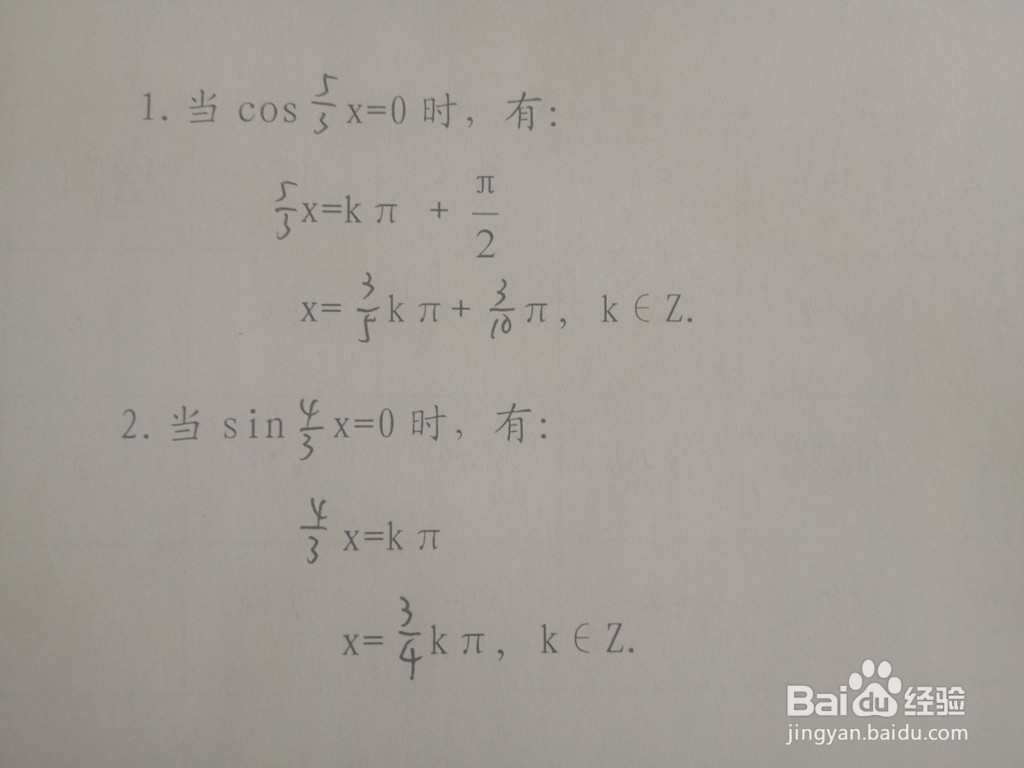 1. 当 cos 5/3 x=0 时，有：
5/3 x=kπ + π/2
x= 3/5 kπ+ 3/10 π， k∈Z.
2. 当 sin 4/3 x=0 时，有：
4/3 x=kπ
x= 3/4 kπ， k∈Z.
Bai du 经验
jingyan.baidu.com